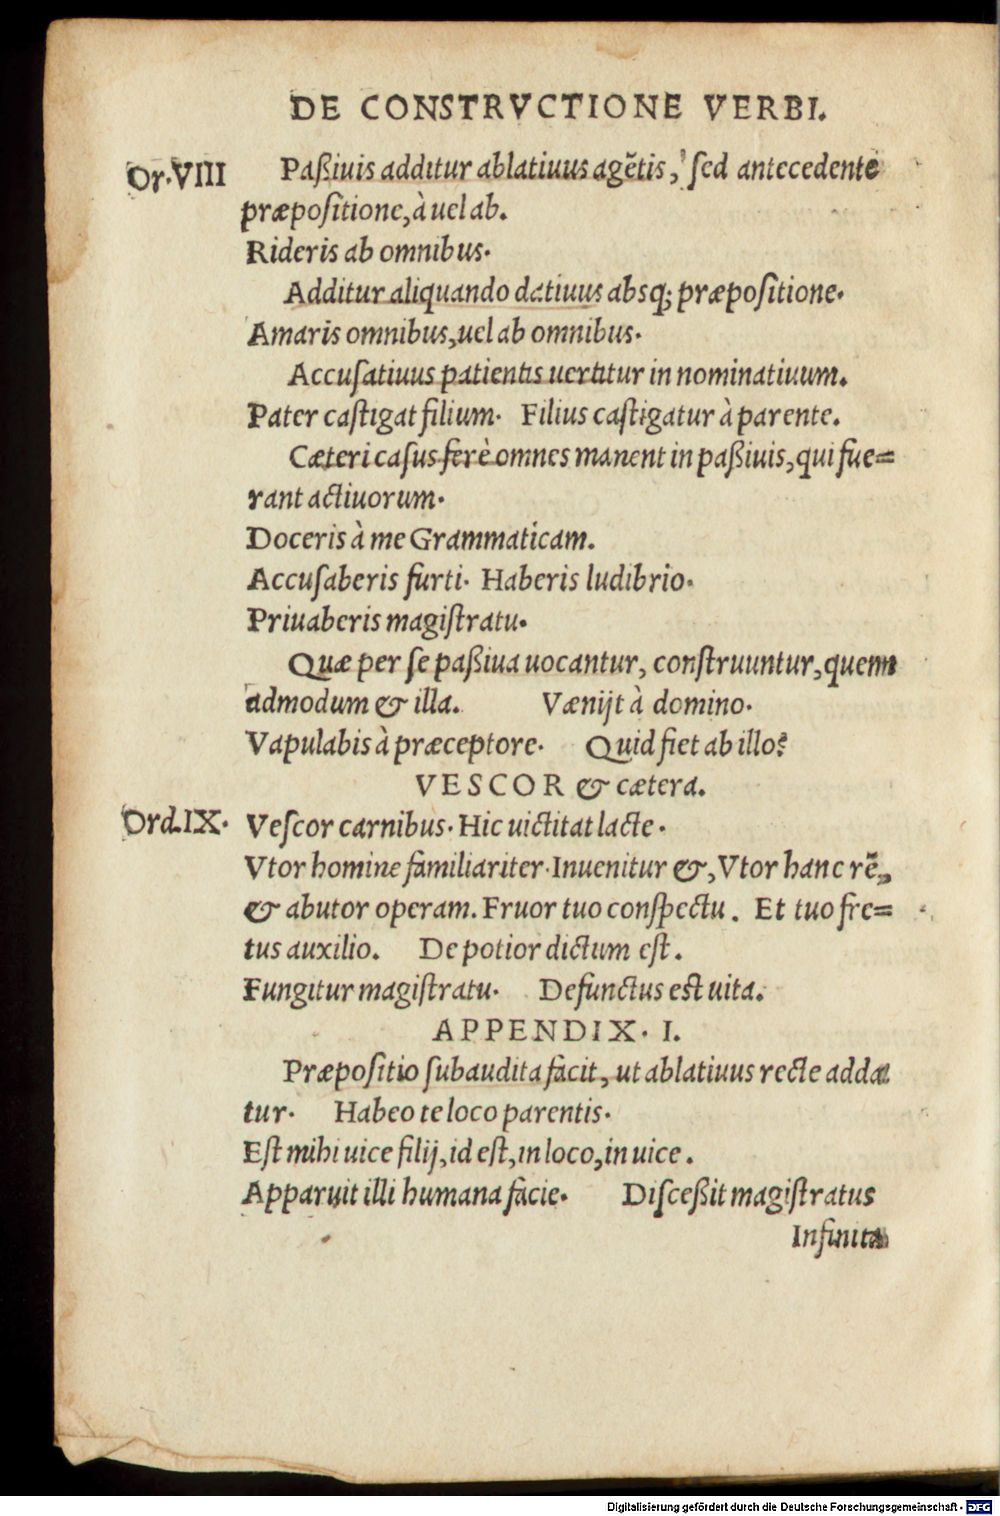 DE CONSTRVCTIONE VERBI.
Or.VIII Paßiuis additur ablatiuus agẽtis, sed antecedente
præpositione, à uel ab.
Rideris ab omnibus.
Additur aliquando datiuus absq; præpositione.
Amaris omnibus, uel ab omnibus.
Accusatiuus patientis uertitur in nominatiuum.
Pater castigat filium. Filius castigatur à parente.
Cæteri casus ferè omnes manent in paßiuis, qui fue=
rant actiuorum.
Doceris à me Grammaticam.
Accusaberis furti. Haberis ludibrio.
Priuaberis magistratu.
Quæ per se paßiua uocantur, construuntur, quem
admodum & illa. Vænijt à domino.
Vapulabis à præceptore. Quid fiet ab illo?
VESCOR & cætera.
Ord.IX. Vescor carnibus. Hic uictitat lacte.
Vtor homine familiariter. Inuenitur &, Vtor hanc rẽ,
& abutor operam. Fruor tuo conspectu. Et tuo fre=
tus auxilio. De potior dictum est.
Fungitur magistratu. Defunctus est uita.
APPENDIX. I.
Præpositio subaudita facit, ut ablatiuus recte adda
tur. Habeo te loco parentis.
Est mihi uice filij, id est, in loco, in uice.
Apparuit illi humana facie. Disceßit magistratus
Infinita
Digitalisierung gefördert durch die Deutsche Forschungsgemeinschaft - DFG